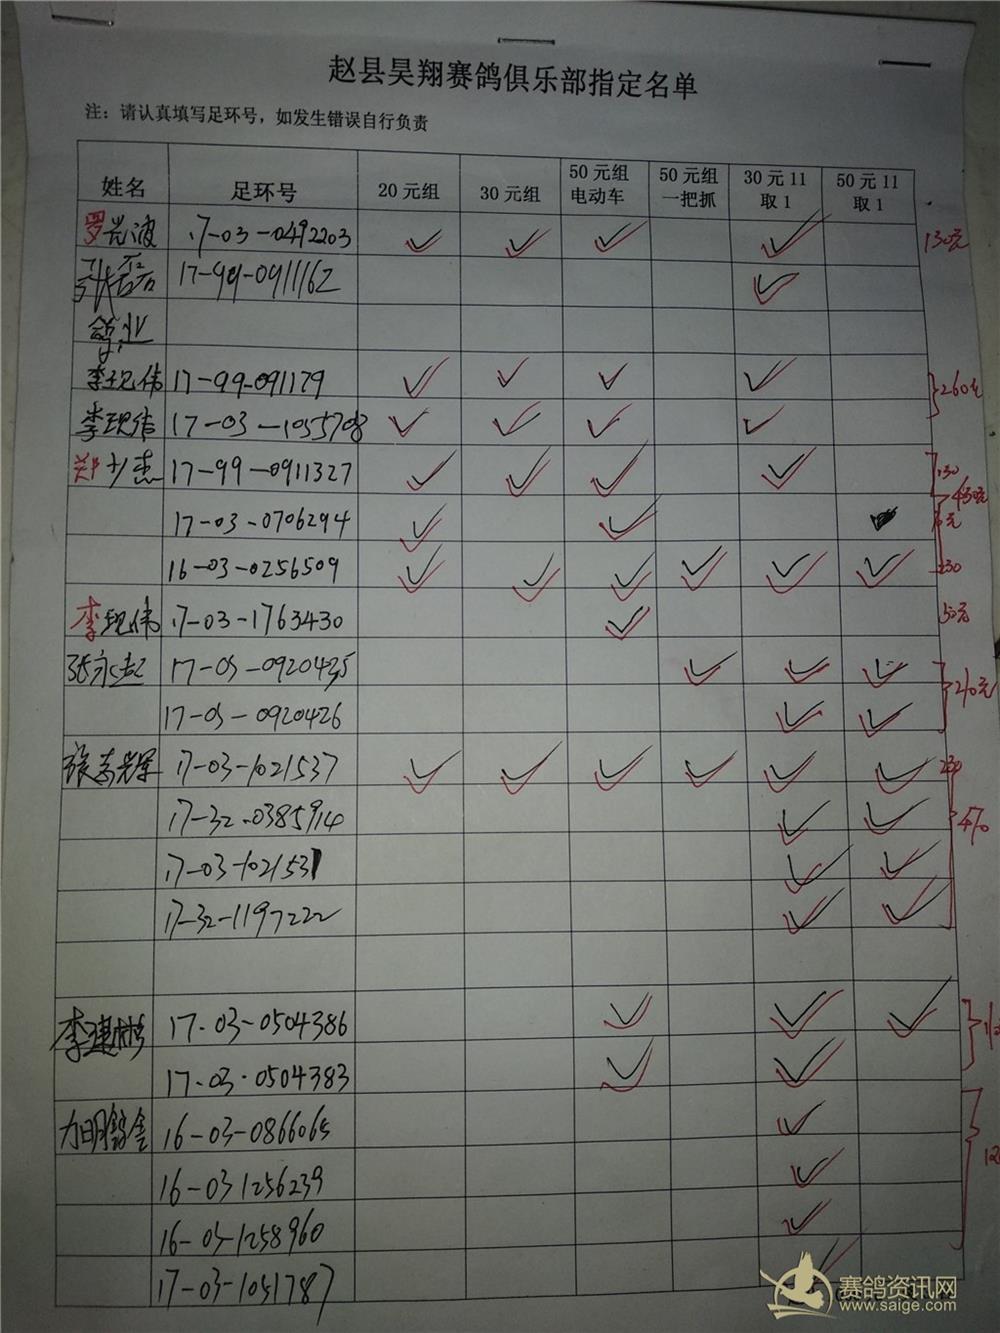 赵县昊翔赛鸽俱乐部指定名单
注：请认真填写足环号，如发生错误自行负责
姓名 足环号 20元组 30元组 50元组电动车 50元组一把抓 30元11取1 50元11取1
罗 波 17-03-0492203 130元
17-99-0911162
鸽业
李现伟 17-99-091179 260元
李现伟 17-03-1055708
郑少杰 17-99-0911327 130
17-03-0706294 元
16-03-0256509 230
李现伟 17-03-1763430 50元
张永起 17-03-0920425 210元
17-03-0920426
张 辉 17-03-1021537 230
17-32-0385914 470
17-03-1021531
17-32-1197222
李建彬 17-03-0504386
17-03-0504383
16-03-0866065
16-03 1256239
16-03-1258960
17-03-1051787
赛鸽资讯网
www.saige.com